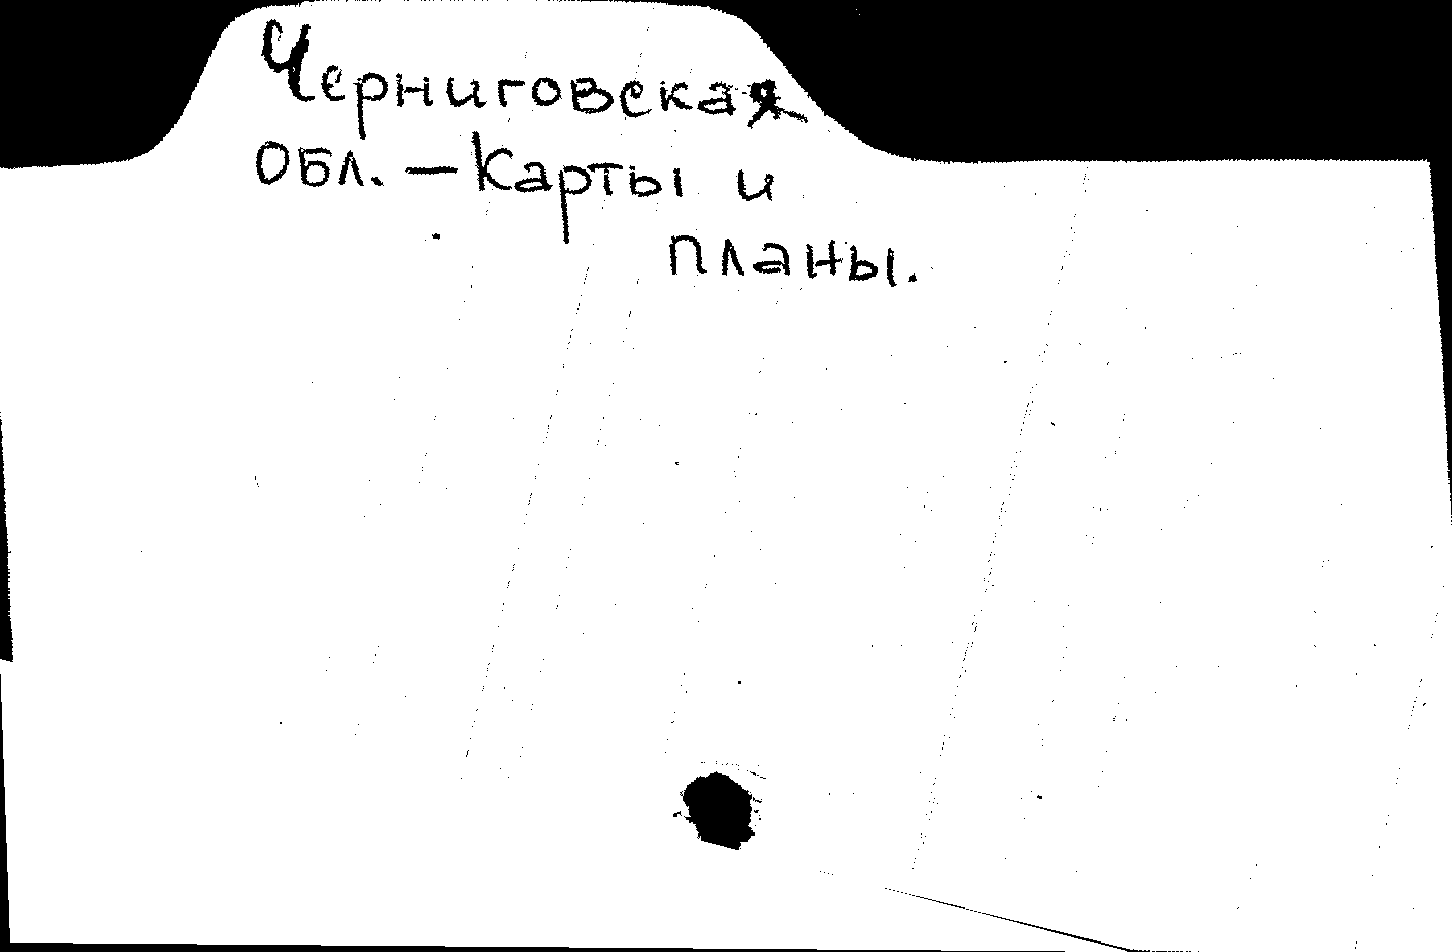 Черниговская
обл. – Карты и
планы.